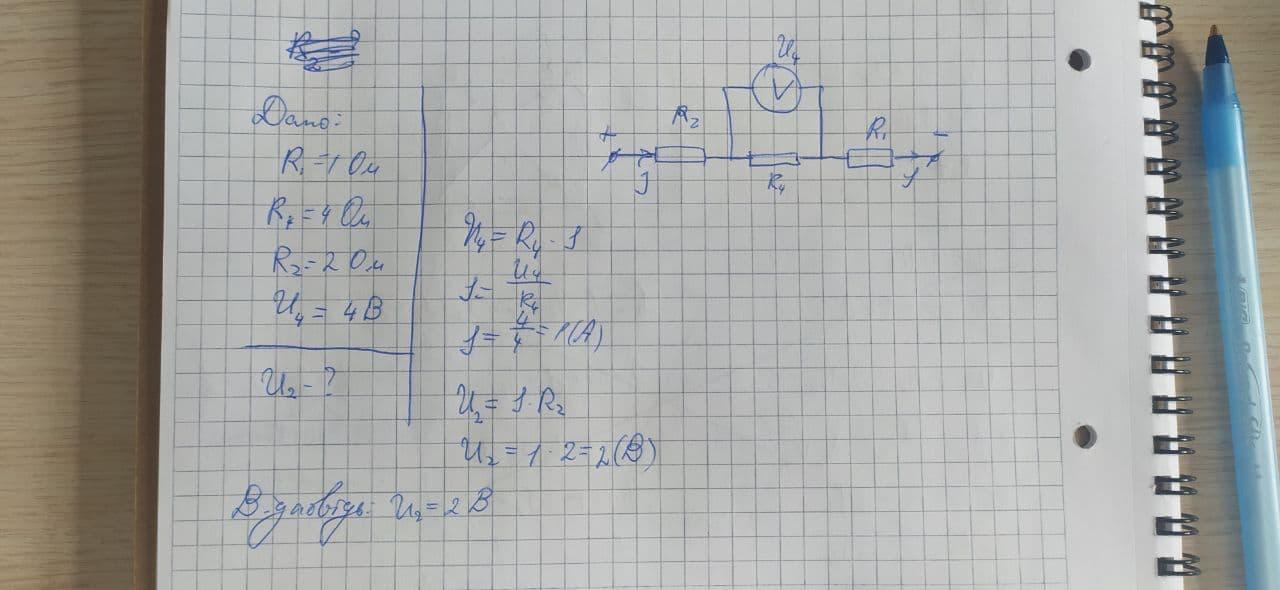 Дано:
R₁=1 Ом
R₄=4 Ом
R₂=2 Ом
U₄=4В
U₂-?
U₄
V
+
R₂
R₁
-
I
R₄
I
U₄=R₄·I
I=U₄/R₄
I=4/4=1(A)
U₂=I·R₂
U₂=1·2=2(В)
Відповідь: U₂=2В